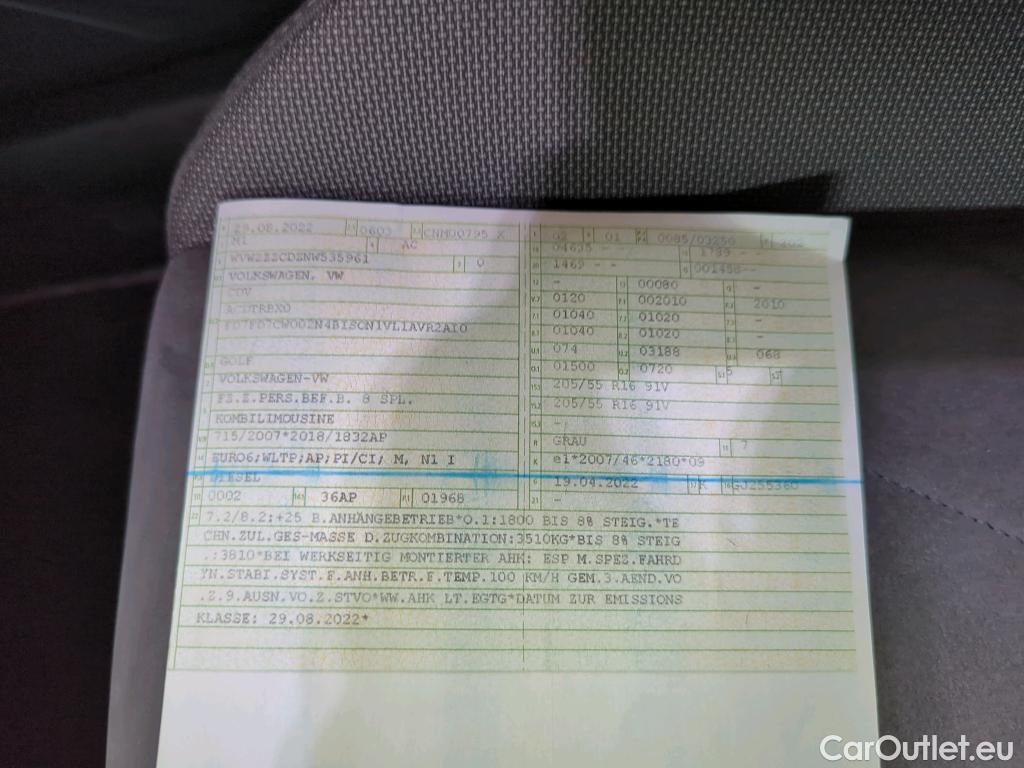 29.08.2022 0603 CNM00795 X
M1 AC
WVWZZZCDZNW535961 0
VOLKSWAGEN, VW
CDV
ACDTRBX0
GOLF
VOLKSWAGEN-VW
FZ.Z.PERS.BEF.B. 8 SPL.
KOMBILIMOUSINE
715/2007*2018/1832AP
EURO6;WLTP;AP;PI/CI; M, N1 I
DIESEL
0002 36AP 01968
02 01 0085/03250
04635 - - 1789 - -
1469 - - 001458--
- 00080 -
0120 002010 2010
01040 01020 -
01040 01020 -
074 03188 068
01500 0720 5
205/55 R16 91V
205/55 R16 91V
-
GRAU 7
e1*2007/46*2180*09
19.04.2022 K GJ255360
-
7.2/8.2:+25 B.ANHÄNGEBETRIEB*O.1:1800 BIS 8% STEIG.*TE
CHN.ZUL.GES-MASSE D.ZUGKOMBINATION:3510KG*BIS 8% STEIG
.:3810*BEI WERKSEITIG MONTIERTER AHK: ESP M.SPEZ.FAHRD
YN.STABI.SYST.F.ANH.BETR.F.TEMP.100 KM/H GEM.3.AEND.VO
.Z.9.AUSN.VO.Z.STVO*WW.AHK LT.EGTG*DATUM ZUR EMISSIONS
KLASSE: 29.08.2022*
CarOutlet.eu